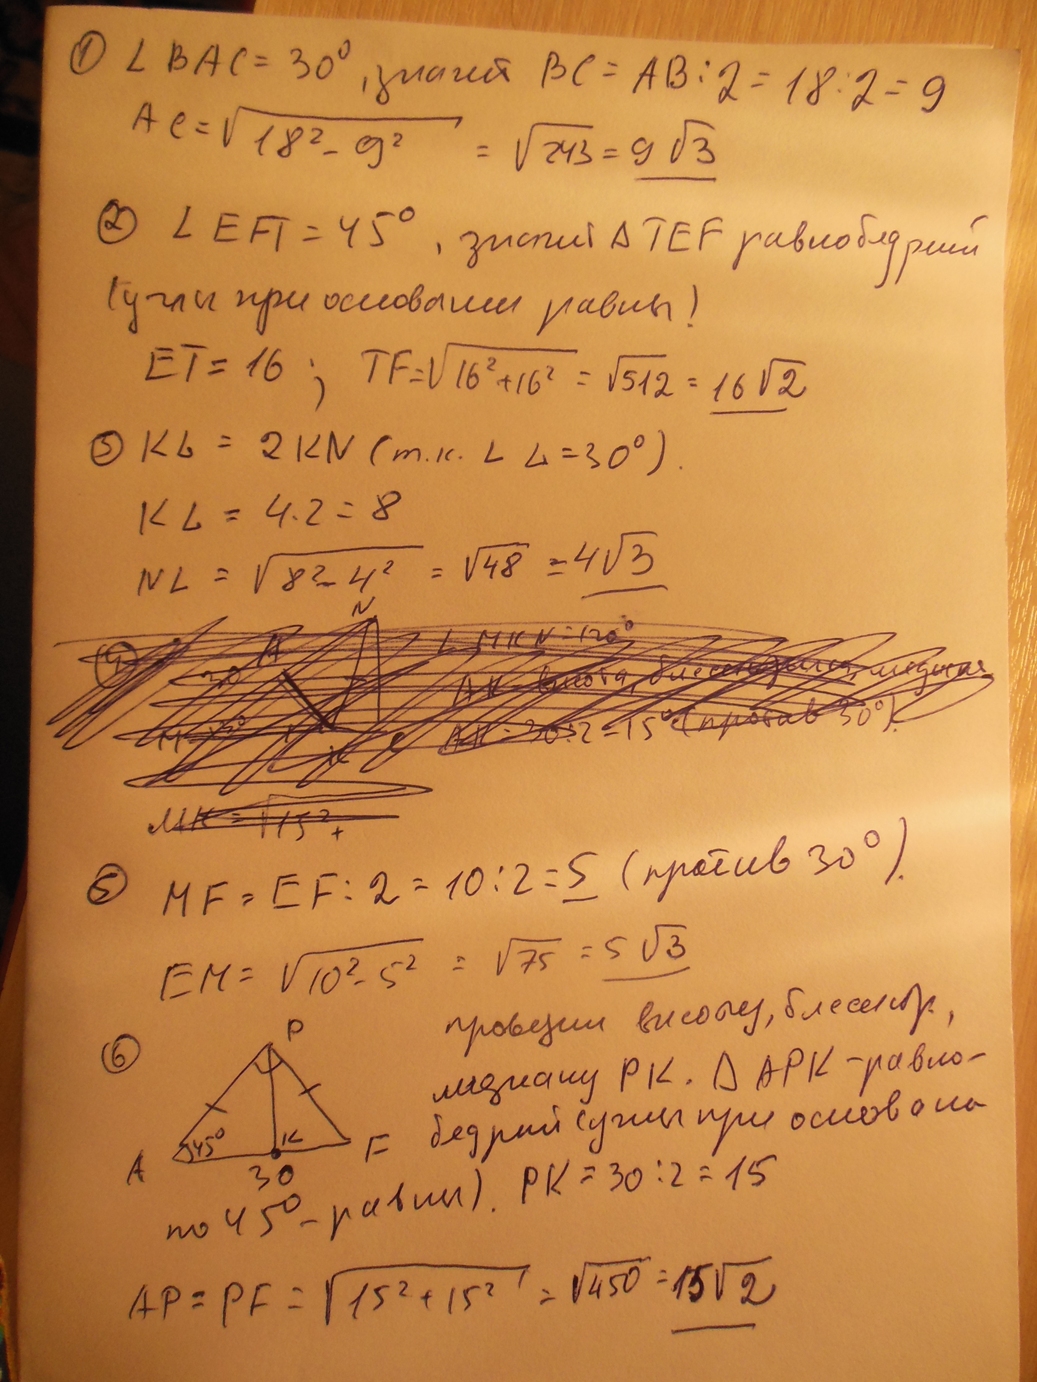 ① ∠BAC = 30°, значит BC = AB : 2 = 18 : 2 = 9
AC = √18² - 9² = √243 = 9√3
② ∠EFT = 45°, значит Δ TEF равнобедрий
(углы при основании равны!
ET = 16 ; TF = √16² + 16² = √512 = 16√2
③ KL = 2KN (т.к. ∠L = 30°).
KL = 4·2 = 8
NL = √8² - 4² = √48 = 4√3
④ N
A ∠MKN = 120°
30
M K
AK = 30 : 2 = 15 (против 30°).
MK = √15² +
⑤ MF = EF : 2 = 10 : 2 = 5 (против 30°).
EM = √10² - 5² = √75 = 5√3
⑥ P проведем высоту, биссектр,
медиану PK. Δ APK - равно-
бедрий (углы при основани
A 45° K F
30
по 45° - равны). PK = 30 : 2 = 15
AP = PF = √15² + 15² = √450 = 15√2